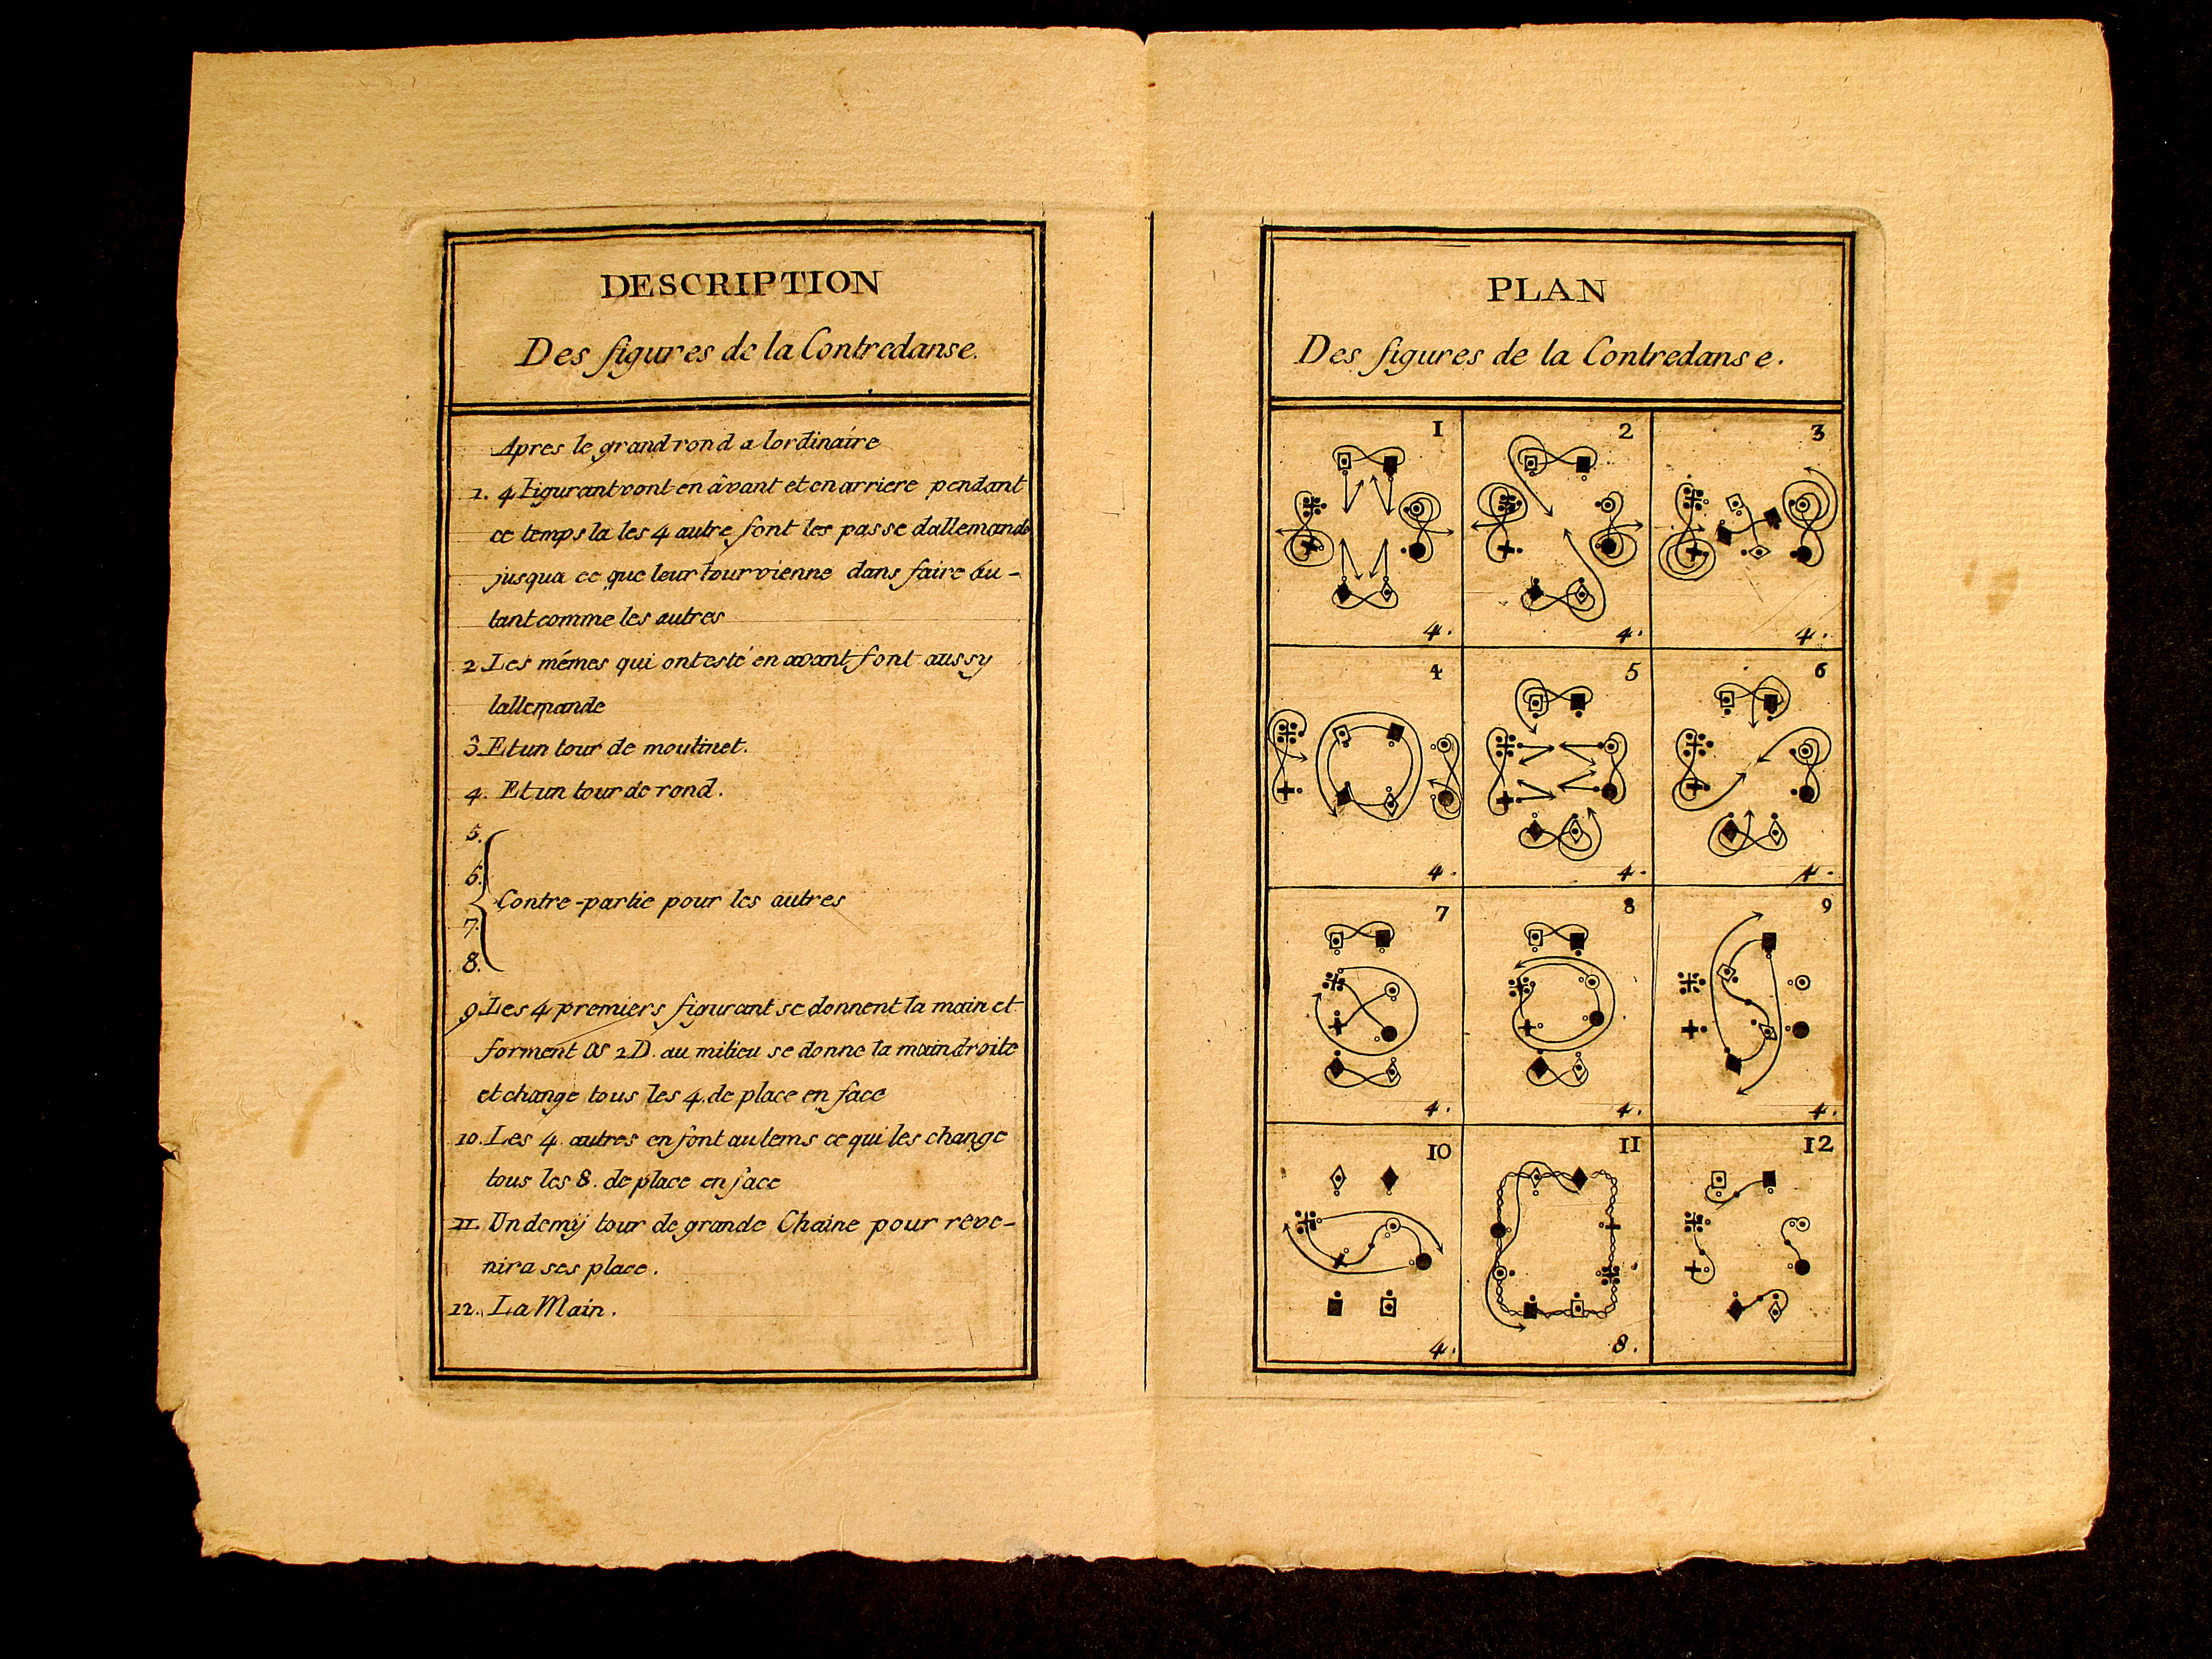 DESCRIPTION
Des figures de la Contredanse.
Apres le grand rond a lordinaire
1. 4 Figurant vont en âvant et en arriere pendant
ce temps la les 4 autre font les passe dallemande
jusqua ce que leur tour vienne dans faire au-
tant comme les autres
2 Les mémes qui ont esté en avant font aussy
lallemande
3. Et un tour de moulinet.
4. Et un tour de rond.
5.
6.
Contre-partie pour les autres
7.
8.
9 Les 4 premiers figurant se donnent la main et
forment 2D. au milieu se donne la main droite
et change tous les 4. de place en face
10. Les 4. autres en font autems ce qui les change
tous les 8. de place en face
11. Un demÿ tour de grande Chaine pour reve-
nir a ses place.
12. La Main.
PLAN
Des figures de la Contredanse.
1 2 3
4. 4. 4.
4 5 6
4. 4. 4.
7 8 9
4. 4. 4.
10 11 12
4. 8.